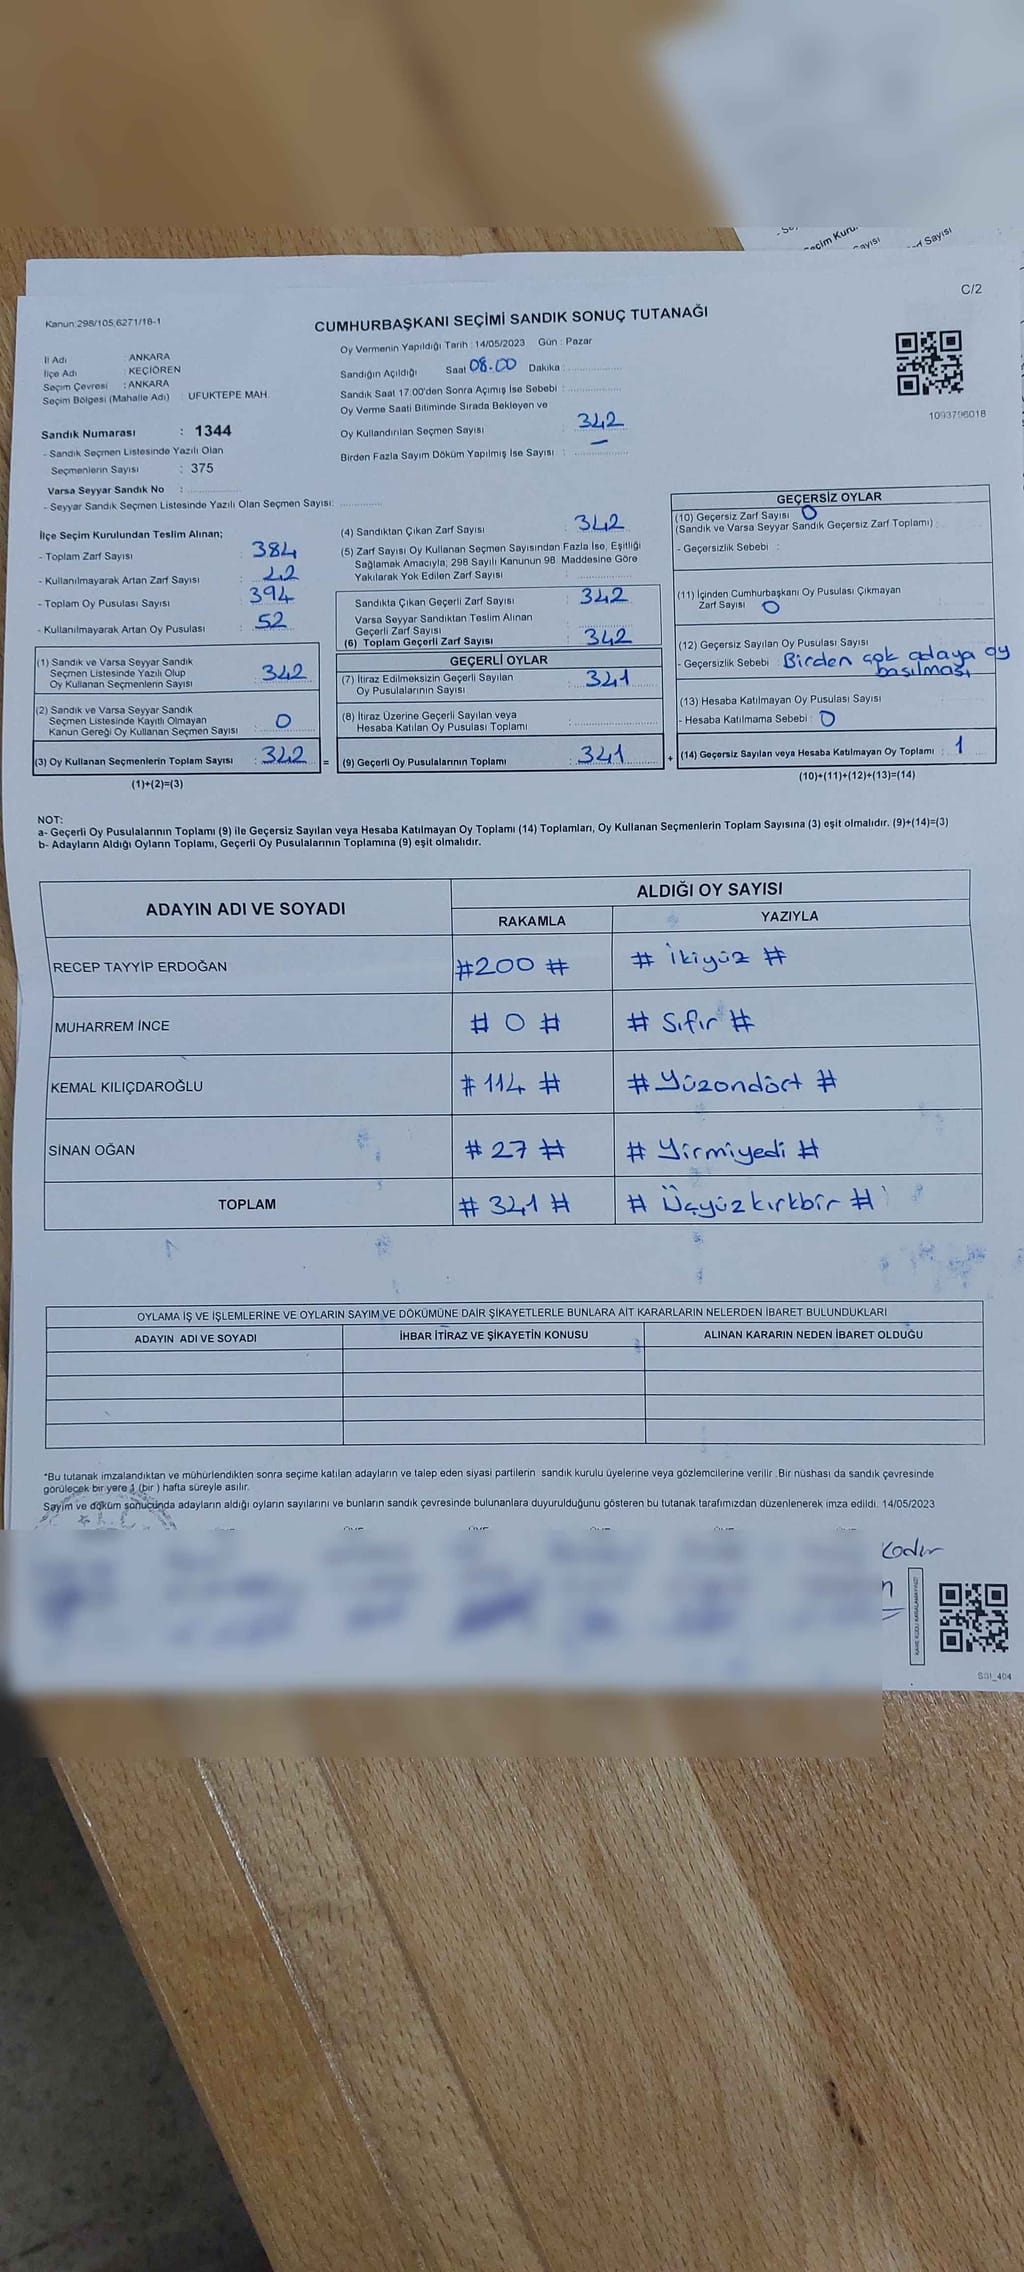 Seçim Kuru
ayısı
Sayısı
C/2
Kanun:298/105,6271/18-1
CUMHURBAŞKANI SEÇİMİ SANDIK SONUÇ TUTANAĞI
Oy Vermenin Yapıldığı Tarih : 14/05/2023 Gün : Pazar
İl Adı : ANKARA
İlçe Adı : KEÇİÖREN
Seçim Çevresi : ANKARA
Seçim Bölgesi (Mahalle Adı) : UFUKTEPE MAH.
Sandığın Açıldığı Saat 08.00 Dakika :
Sandık Saat 17.00'den Sonra Açımış İse Sebebi :
Oy Verme Saati Bitiminde Sırada Bekleyen ve
Oy Kullandırılan Seçmen Sayısı : 342
Birden Fazla Sayım Döküm Yapılmış İse Sayısı : —
1093796018
Sandık Numarası : 1344
- Sandık Seçmen Listesinde Yazılı Olan
Seçmenlerin Sayısı : 375
Varsa Seyyar Sandık No :
- Seyyar Sandık Seçmen Listesinde Yazılı Olan Seçmen Sayısı:
İlçe Seçim Kurulundan Teslim Alınan;
- Toplam Zarf Sayısı : 384
- Kullanılmayarak Artan Zarf Sayısı : 42
- Toplam Oy Pusulası Sayısı : 394
- Kullanılmayarak Artan Oy Pusulası : 52
(1) Sandık ve Varsa Seyyar Sandık
Seçmen Listesinde Yazılı Olup
Oy Kullanan Seçmenlerin Sayısı : 342
(2) Sandık ve Varsa Seyyar Sandık
Seçmen Listesinde Kayıtlı Olmayan
Kanun Gereği Oy Kullanan Seçmen Sayısı : 0
(3) Oy Kullanan Seçmenlerin Toplam Sayısı : 342 =
(1)+(2)=(3)
(4) Sandıktan Çıkan Zarf Sayısı : 342
(5) Zarf Sayısı Oy Kullanan Seçmen Sayısından Fazla İse, Eşitliği
Sağlamak Amacıyla; 298 Sayılı Kanunun 98. Maddesine Göre
Yakılarak Yok Edilen Zarf Sayısı :
Sandıkta Çıkan Geçerli Zarf Sayısı : 342
Varsa Seyyar Sandıktan Teslim Alınan
Geçerli Zarf Sayısı :
(6) Toplam Geçerli Zarf Sayısı : 342
GEÇERLİ OYLAR
(7) İtiraz Edilmeksizin Geçerli Sayılan
Oy Pusulalarının Sayısı : 341
(8) İtiraz Üzerine Geçerli Sayılan veya
Hesaba Katılan Oy Pusulası Toplamı :
(9) Geçerli Oy Pusulalarının Toplamı : 341 +
GEÇERSİZ OYLAR
(10) Geçersiz Zarf Sayısı 0
(Sandık ve Varsa Seyyar Sandık Geçersiz Zarf Toplamı) :
- Geçersizlik Sebebi :
(11) İçinden Cumhurbaşkanı Oy Pusulası Çıkmayan
Zarf Sayısı 0
(12) Geçersiz Sayılan Oy Pusulası Sayısı
- Geçersizlik Sebebi : Birden çok adaya oy
basılması
(13) Hesaba Katılmayan Oy Pusulası Sayısı
- Hesaba Katılmama Sebebi : 0
(14) Geçersiz Sayılan veya Hesaba Katılmayan Oy Toplamı : 1
(10)+(11)+(12)+(13)=(14)
NOT:
a- Geçerli Oy Pusulalarının Toplamı (9) ile Geçersiz Sayılan veya Hesaba Katılmayan Oy Toplamı (14) Toplamları, Oy Kullanan Seçmenlerin Toplam Sayısına (3) eşit olmalıdır. (9)+(14)=(3)
b- Adayların Aldığı Oyların Toplamı, Geçerli Oy Pusulalarının Toplamına (9) eşit olmalıdır.
ADAYIN ADI VE SOYADI ALDIĞI OY SAYISI
RAKAMLA YAZIYLA
RECEP TAYYİP ERDOĞAN #200 # # İkiyüz #
MUHARREM İNCE # 0 # # Sıfır #
KEMAL KILIÇDAROĞLU # 114 # # Yüzondört #
SİNAN OĞAN # 27 # # Yirmiyedi #
TOPLAM # 341 # # Üçyüzkırkbir #
OYLAMA İŞ VE İŞLEMLERİNE VE OYLARIN SAYIM VE DÖKÜMÜNE DAİR ŞİKAYETLERLE BUNLARA AİT KARARLARIN NELERDEN İBARET BULUNDUKLARI
ADAYIN ADI VE SOYADI İHBAR İTİRAZ VE ŞİKAYETİN KONUSU ALINAN KARARIN NEDEN İBARET OLDUĞU
*Bu tutanak imzalandıktan ve mühürlendikten sonra seçime katılan adayların ve talep eden siyasi partilerin sandık kurulu üyelerine veya gözlemcilerine verilir .Bir nüshası da sandık çevresinde
görülecek bir yere 1 (bir ) hafta süreyle asılır.
Sayım ve döküm sonucunda adayların aldığı oyların sayılarını ve bunların sandık çevresinde bulunanlara duyurulduğunu gösteren bu tutanak tarafımızdan düzenlenerek imza edildi. 14/05/2023